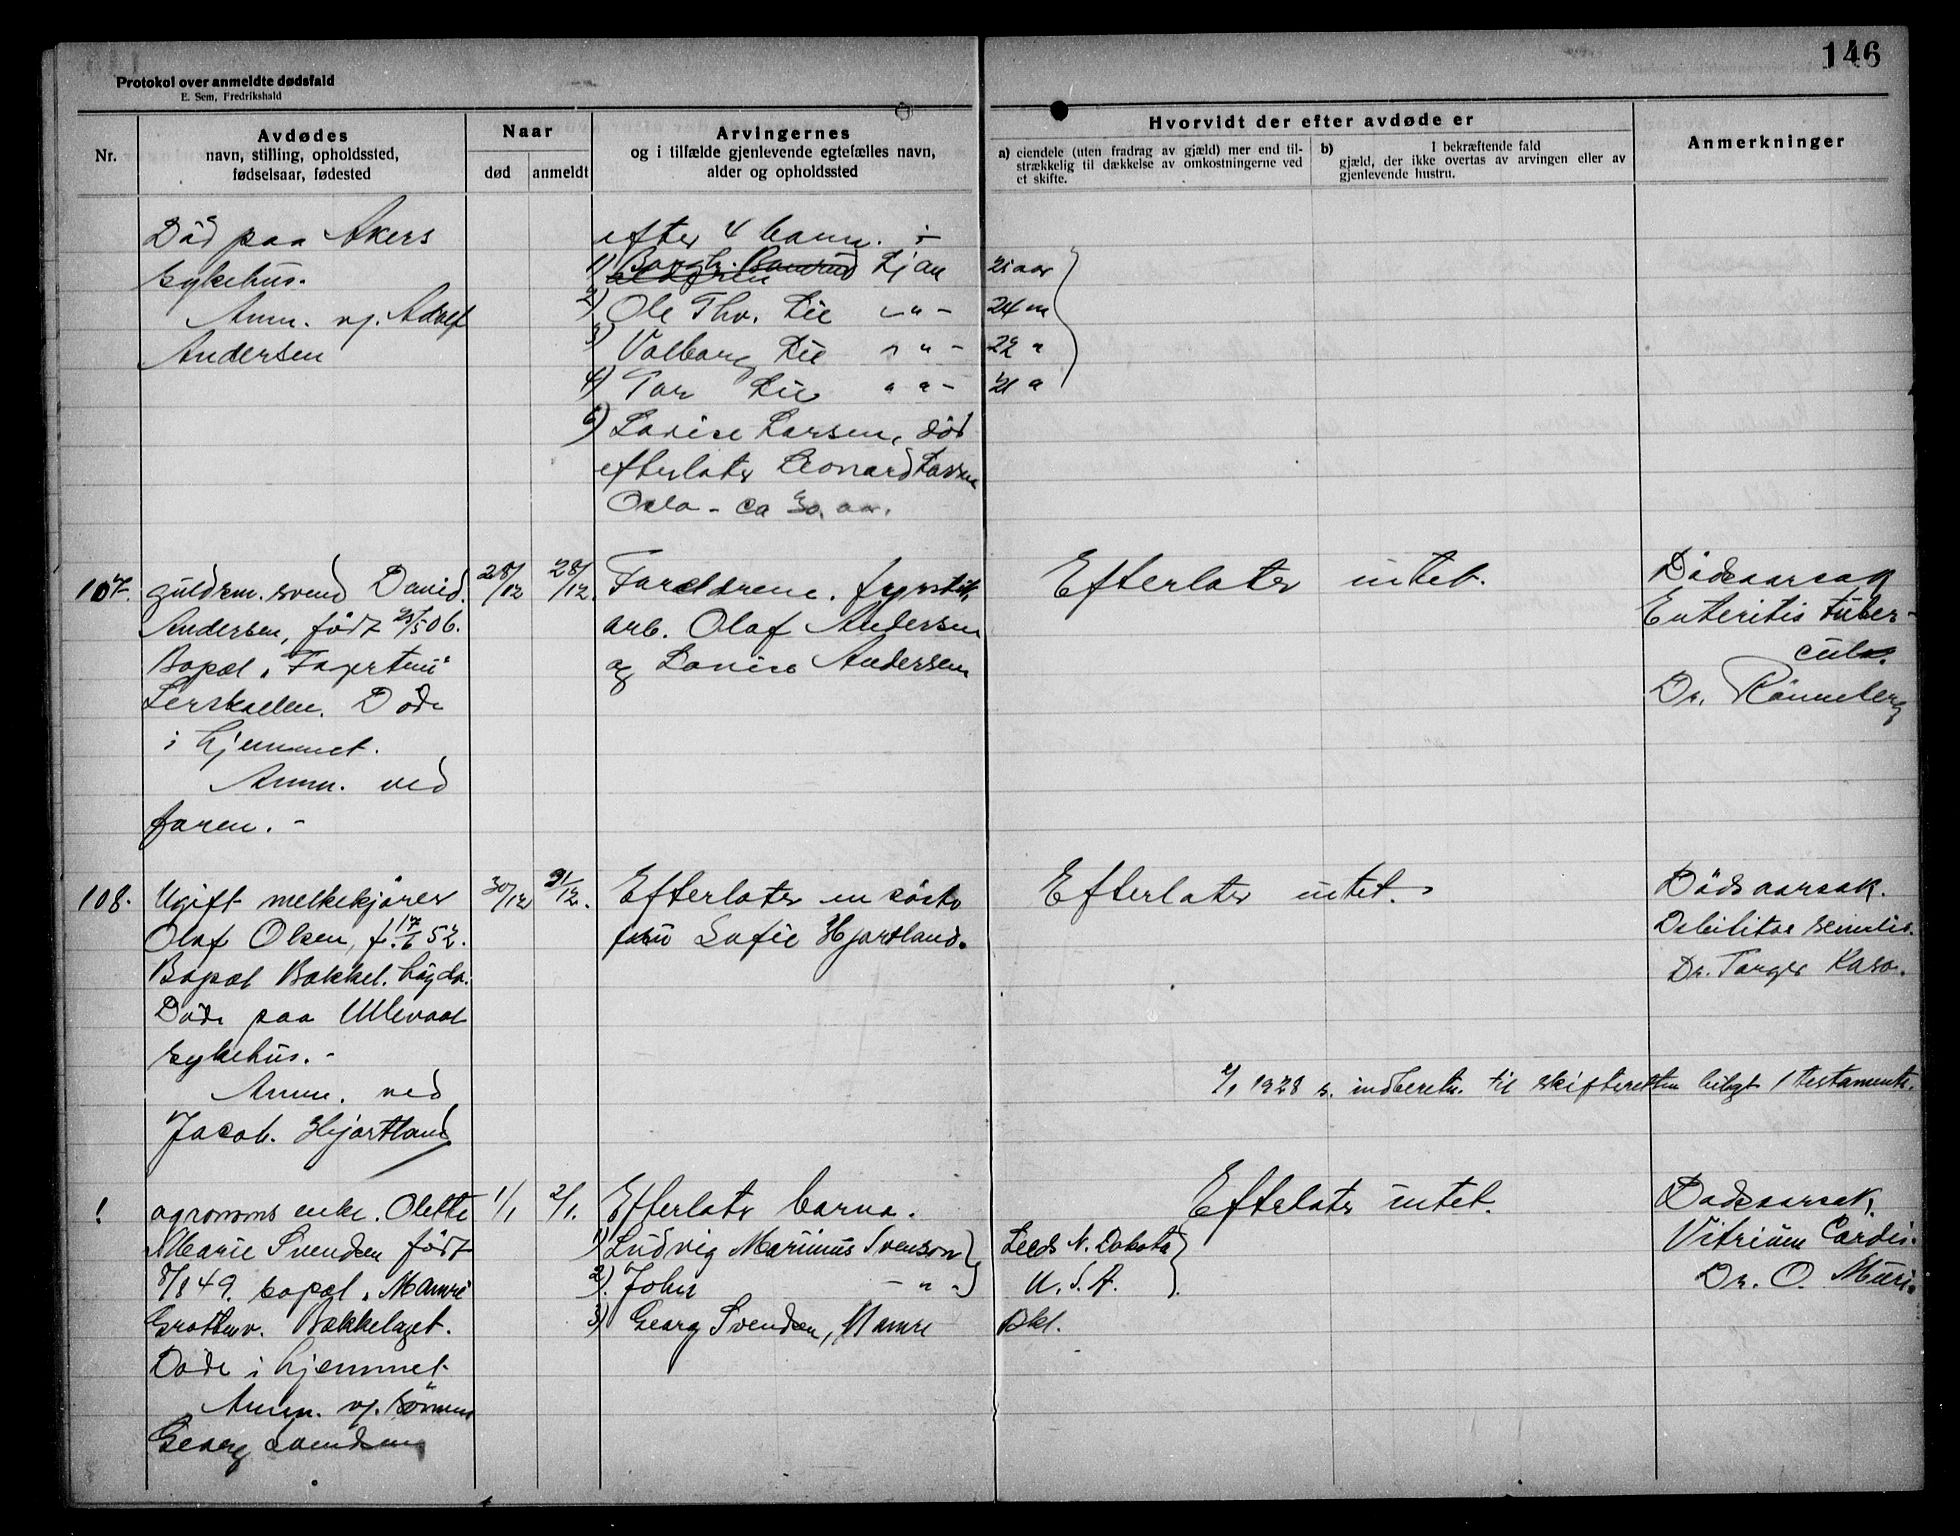 146
Protokol over anmeldte dødsfald
E. Sem, Fredrikshald
Nr.
Avdødes
navn, stilling, opholdssted,
fødselsaar, fødested
Naar
død
anmeldt
Arvingernes
og i tilfælde gjenlevende egtefælles navn,
alder og opholdssted
Hvorvidt der efter avdøde er
a) eiendele (uten fradrag av gjæld) mer end til-
strækkelig til dækkelse av omkostningerne ved
et skifte.
b) I bekræftende fald
gjæld, der ikke overtas av arvingen eller av
gjenlevende hustru.
Anmerkninger
Död paa Akers
sykehus.
Anm. v. Adolf
Andersen
efter 4 barn.
1) Ljan
2) Ole Thv. Lie - " - 24 "
3) Valborg Lie " " - 22 "
4) Tor Lie " " - 21 "
6) Lovise Larsen, död
efterlater Leonard Larsen
Oslo - ca 30 aar.
107. guldsm. svend David
Andersen, født 25/5 06.
Bopæl "Fagertun"
Døde
i hjemmet.
Anm. ved
faren. -
28/12
28/12.
Forældrene. fyrstik
arb. Olaf Andersen
og Lovise Andersen
Efterlater intet.
Dødsaarsak
Enteritis tuber-
culos.
Dr. Rönneberg
108. Ugift melkekjører
Olaf Olsen, f. 17/6 52.
Bopæl Bækkel. høgda.
Døde paa Ullevaal
sykehus. -
Anm. ved
Jacob Hjortland
30/12
31/12.
Efterlater en søster
fru Sofie Hjortland.
Efterlater intet.
Dødsaarsak.
Debilitas senilis.
Dr. Torger Kaso.
1928 s. indberetn. til skifteretten bilagt 1 testamente.
1 agronoms enke. Olette
Marie Svendsen født
8/8 49. bopæl "Mamre"
Grottenv. Bækkelaget.
Døde i hjemmet
Anm. v. sønnen
Georg Svendsen
1/1
2/1.
Efterlater barna.
1) Ludvig Marinius Svenson Leeds N. Dakota
2) John - " - U. S. A.
3) Georg Svendsen, Mamre Bkl.
Efterlater intet.
Dødsaarsak.
Vitrium Cordis.
Dr. O. Müri.